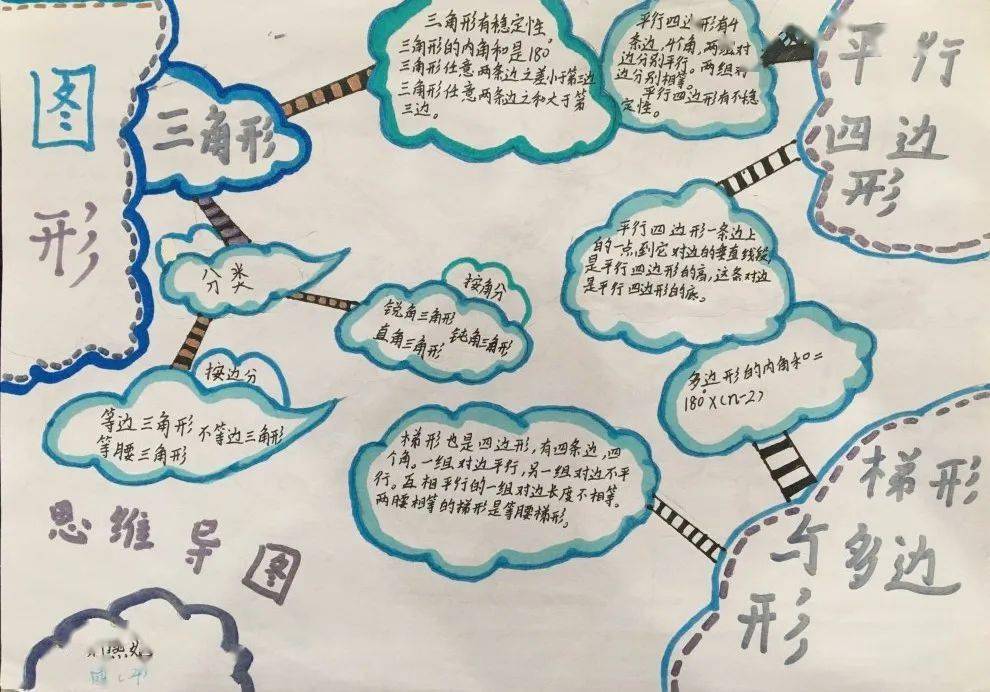 图
形
三角形
三角形有稳定性。
三角形的内角和是180°
三角形任意两条边之差小于第三边
三角形任意两条边之和大于第
三边。
平行四边形有4
条边,4个角,两组对
边分别平行。两组对
边分别相等。
平行四边形有不稳
定性。
平行
四边
形
分类
按角分
锐角三角形
直角三角形 钝角三角形
按边分
等边三角形 不等边三角形
等腰三角形
平行四边形一条边上
的一点到它对边的垂直线段
是平行四边形的高,这条对边
是平行四边形的底。
多边形的内角和=
180°×(n-2)
梯形也是四边形,有四条边,四
个角。一组对边平行,另一组对边不平
行。互相平行的一组对边长度不相等。
两腰相等的梯形是等腰梯形。
梯形
与多边
形
思维导图